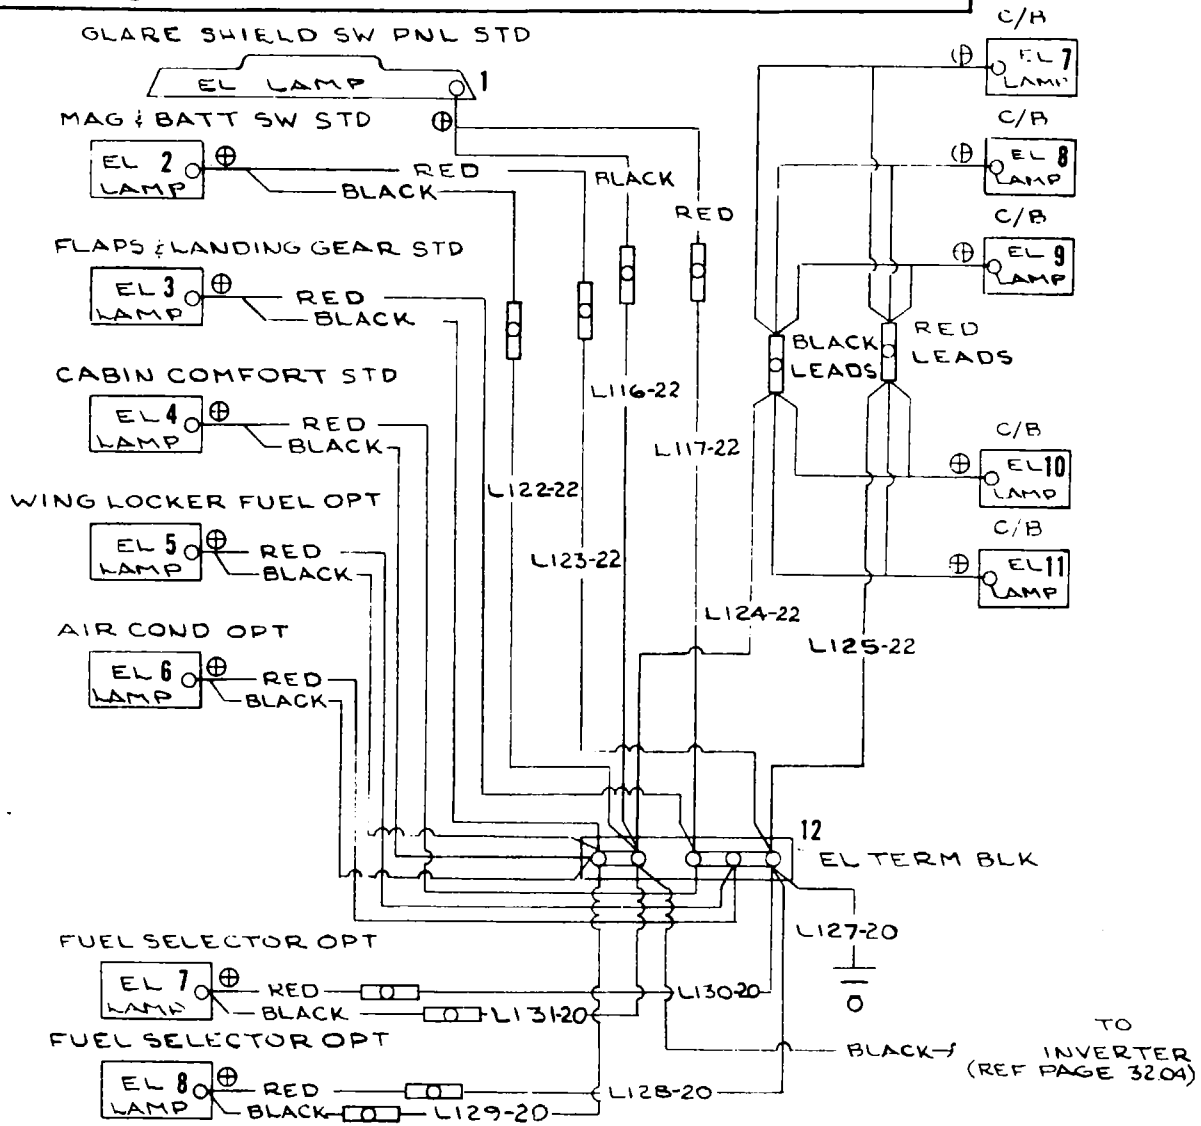 GLARE SHIELD SW PNL STD
EL LAMP
1
MAG & BATT SW STD
EL 2
LAMP
RED
BLACK
FLAPS & LANDING GEAR STD
EL 3
LAMP
RED
BLACK
CABIN COMFORT STD
EL 4
LAMP
RED
BLACK
WING LOCKER FUEL OPT
EL 5
LAMP
RED
BLACK
AIR COND OPT
EL 6
LAMP
RED
BLACK
BLACK
RED
L116-22
L117-22
L122-22
L123-22
L124-22
L125-22
C/B
EL 7
LAMP
C/B
EL 8
LAMP
C/B
EL 9
LAMP
BLACK
LEADS
RED
LEADS
C/B
EL 10
LAMP
C/B
EL 11
LAMP
12
EL TERM BLK
L127-20
FUEL SELECTOR OPT
EL 7
LAMP
RED
L130-20
BLACK
L131-20
FUEL SELECTOR OPT
EL 8
LAMP
RED
L128-20
BLACK
L129-20
BLACK
TO
INVERTER
(REF PAGE 32.04)